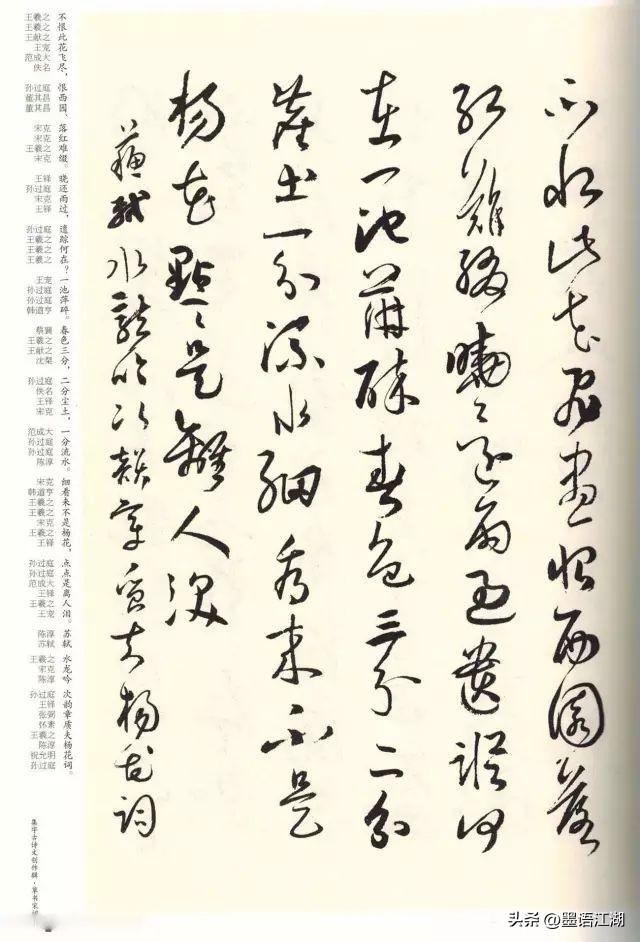 不恨此花飛盡恨西園落
紅難綴曉還雨過遺蹤何
在一池萍碎春色三分二分
塵土一分流水細看来不是
楊花點點是離人淚
蘇軾水龍吟次韻章質夫楊花詞
不恨此花飞尽，
王羲之 王羲之 王献之 王宠 范成大 佚名
恨西园、
孙过庭 董其昌 董其昌
落红难缀。
宋克 宋克 王羲之 宋克
晓还雨过，
王铎 孙过庭 宋克 王铎
遗踪何在？
孙过庭 王羲之 王羲之 王羲之
一池萍碎。
王宠 孙过庭 孙过庭 韩道亨
春色三分，
蔡襄 王羲之 王献之 沈粲
二分尘土，
孙过庭 佚名 王铎 宋克
一分流水。
范成大 孙过庭 孙过庭 陈淳
细看来不是杨花，
宋克 韩道亨 王羲之 王羲之 宋克 王羲之 王铎
点点是离人泪。
孙过庭 孙过庭 范成大 王铎 王羲之 王宠
苏轼
陈淳 苏轼
水龙吟
王羲之 宋克 陈淳
次韵章质夫杨花词。
孙过庭 王铎 张弼 怀素 王羲之 陈淳 祝允明 孙过庭
集字古诗文创作辑·草书宋
头条 @墨语江湖